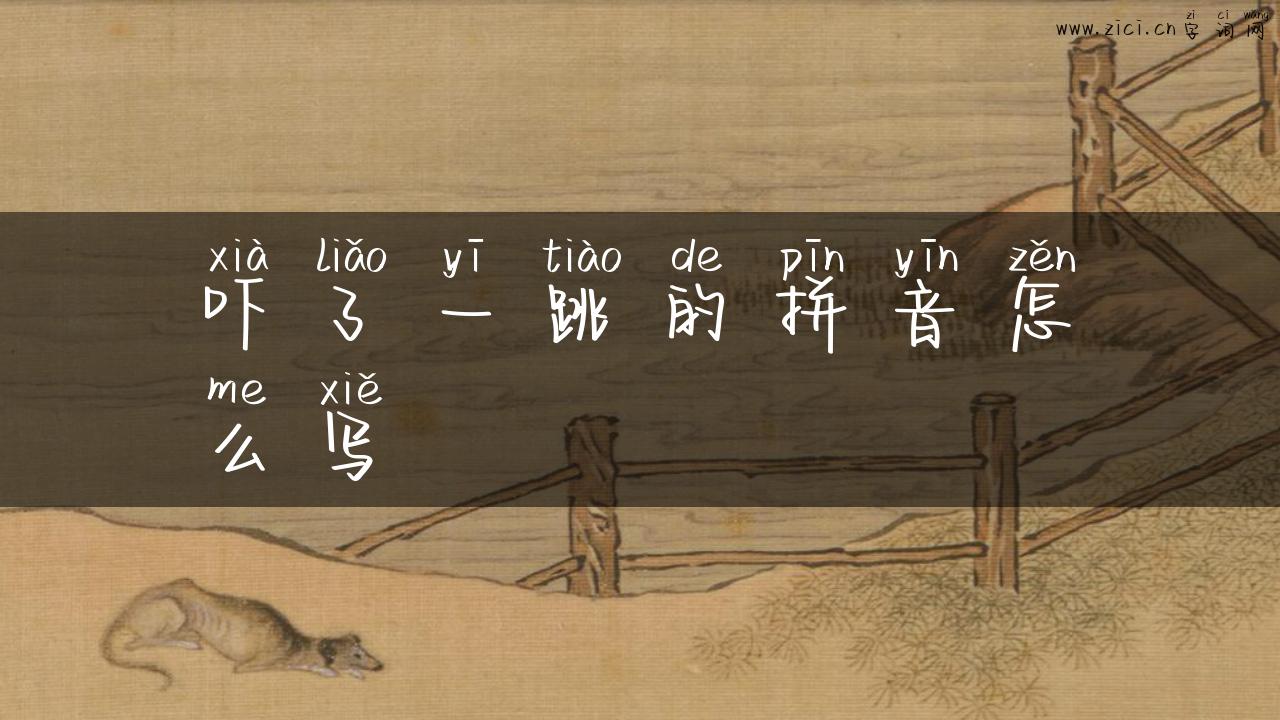 zi ci wang
www.zici.cn 字词网
xià liǎo yī tiào de pīn yīn zěn
吓了一跳的拼音怎
me xiě
么写